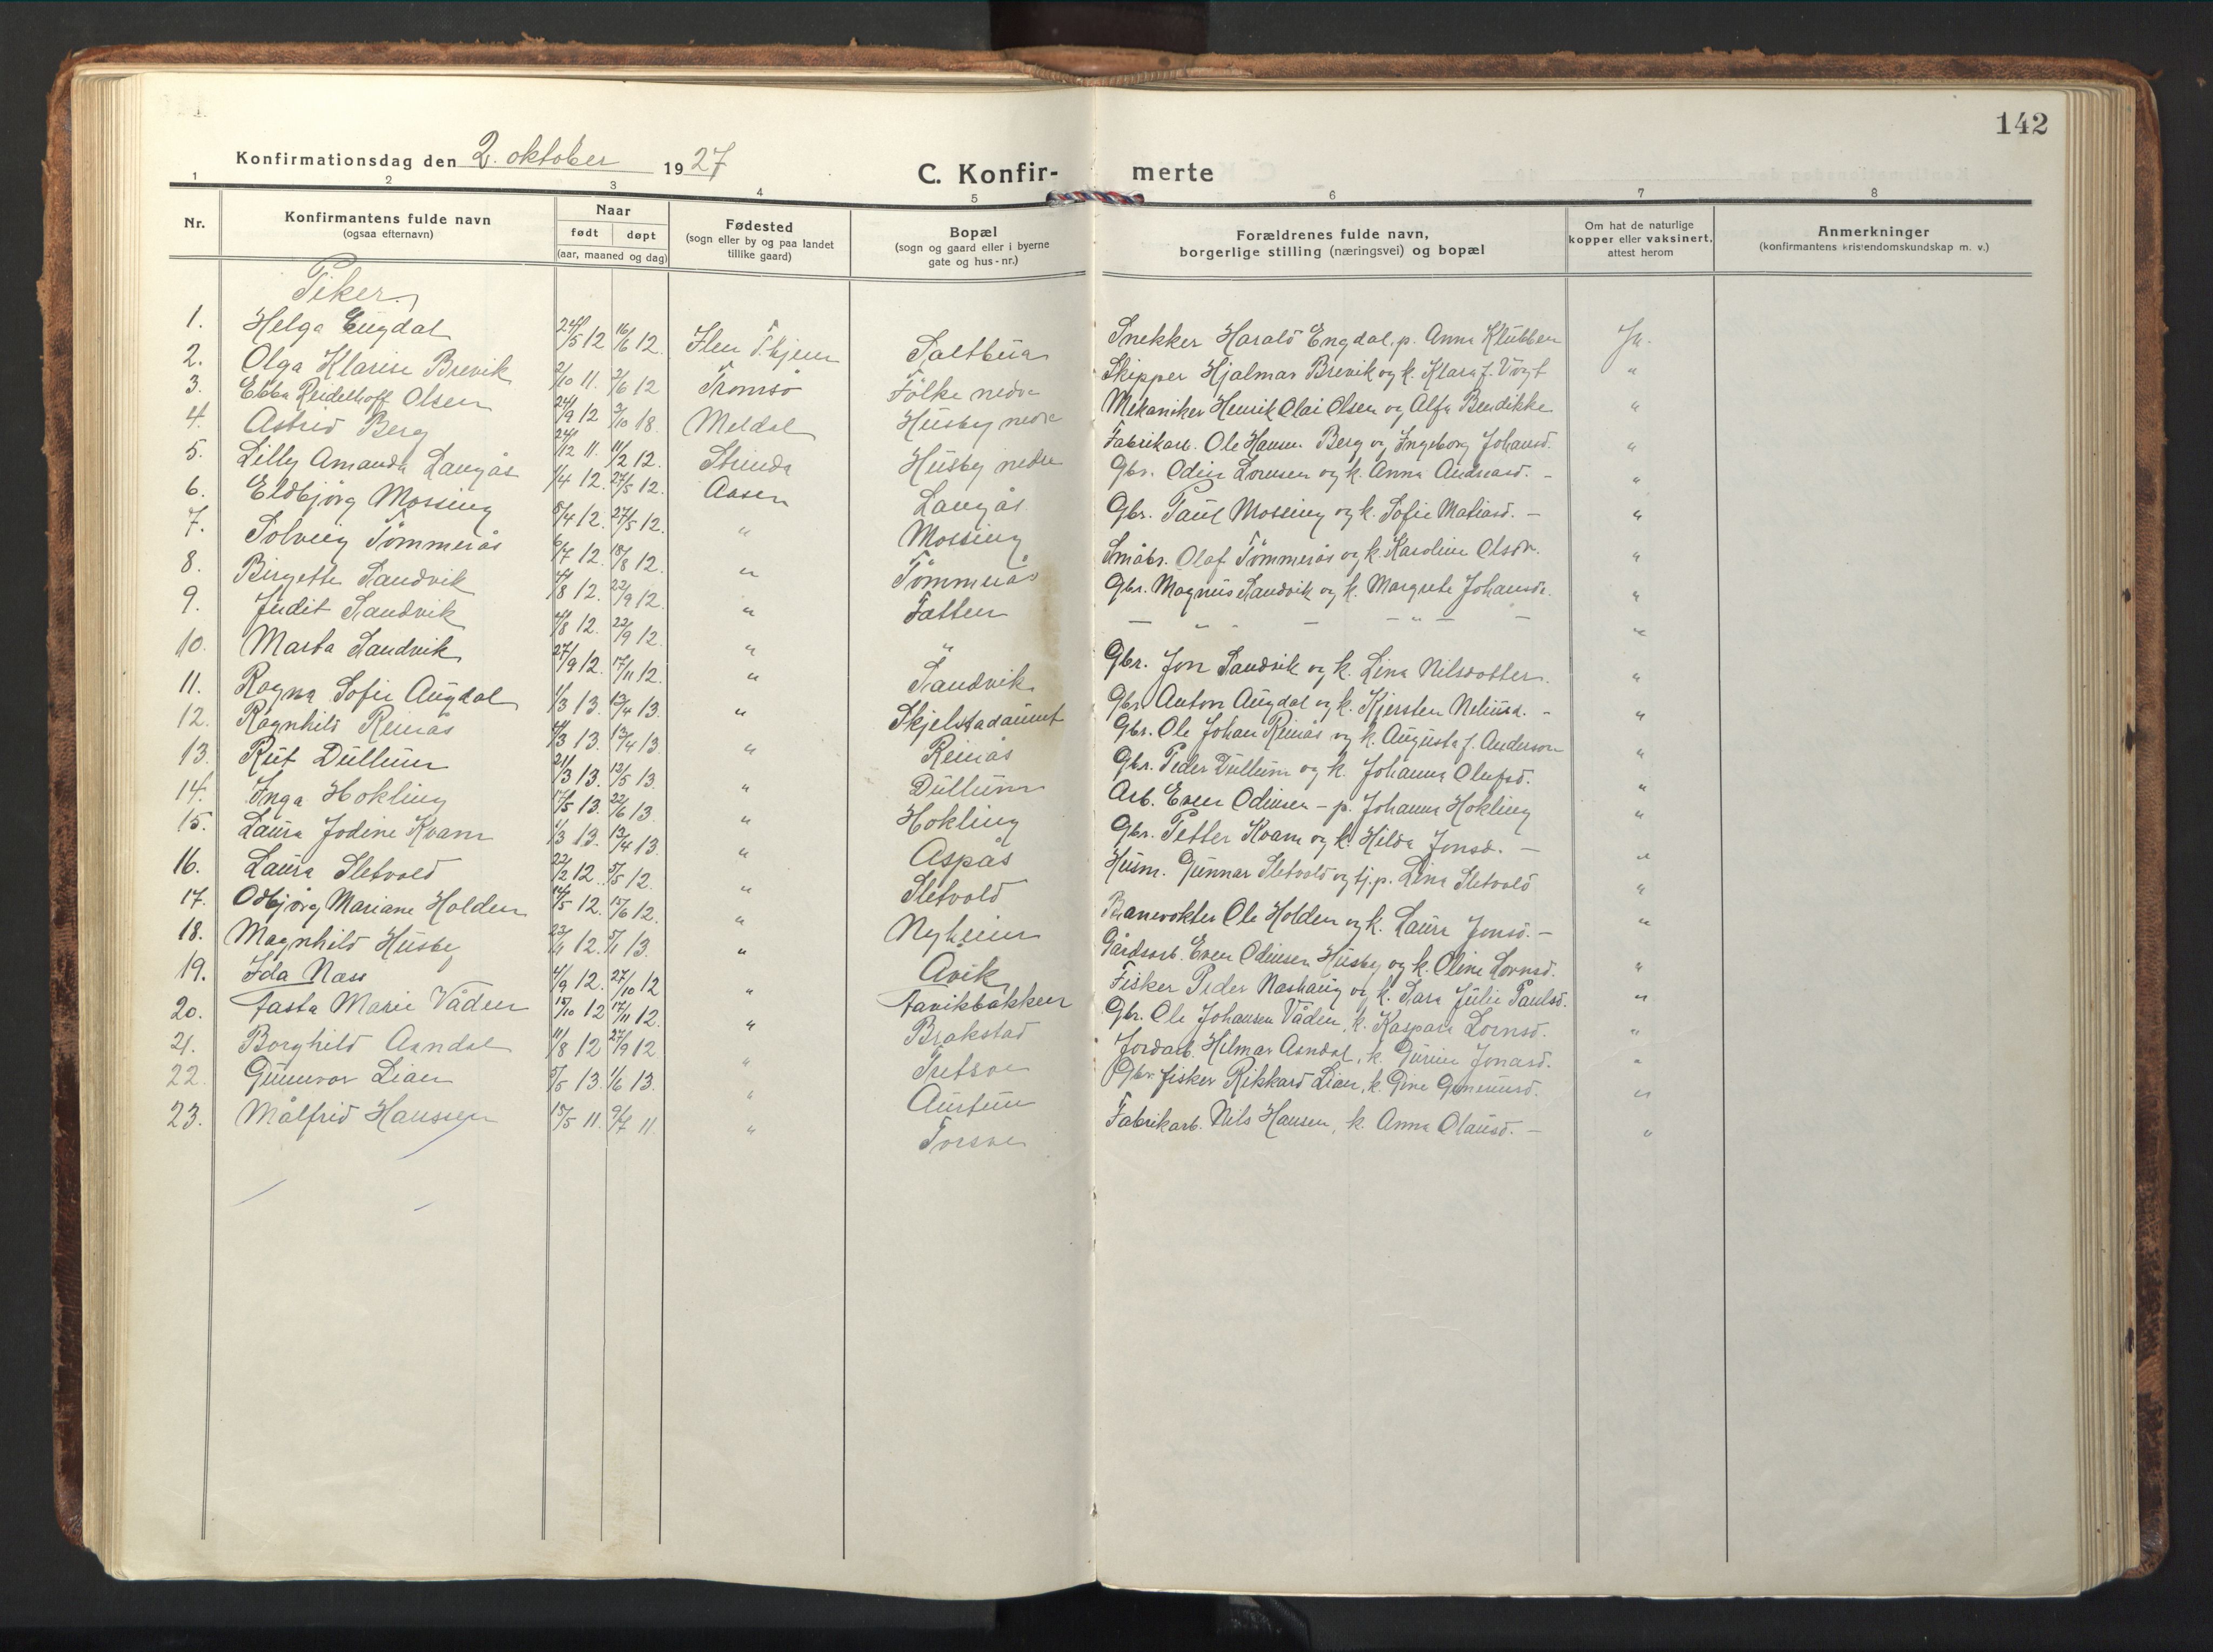 142
Konfirmationsdag den 2. oktober 1927
C. Konfirmerte
1 2 3 4 5 6 7 8
Nr. Konfirmantens fulde navn (ogsaa efternavn) Naar født døpt (aar, maaned og dag) Fødested (sogn eller by og paa landet tillike gaard) Bopæl (sogn og gaard eller i byerne gate og hus-nr.) Forældrenes fulde navn, borgerlige stilling (næringsvei) og bopæl Om hat de naturlige kopper eller vaksinert, attest herom Anmerkninger (konfirmantens kristendomskundskap m. v.)
Piker.
1. Helga Engdal 24/5 12 16/6 12. Ilen T.hjem Saltbua Snekker Harald Engdal, p. Anna Klubben Ja.
2. Olga Klarise Brevik 2/10 11. 2/6 12 Tromsø Fölke nedre Skipper Hjalmar Brevik og k. Klara f. Vogt "
3. Ebba Reidelhoff Olsen 24/9 12 3/10 18. Meldal Husby nedre Mekaniker Henrik Olai Olsen og Alfa Bendikke "
4. Astrid Berg 24/12 11. 11/2 12. Strinda Husby nedre Fabrikarb. Ole Hansen Berg og Ingeborg Johansd. "
5. Lilly Amanda Langås 1/4 12. 27/5 12. Aasen Langås Gbr. Odin Lorensen og k. Anna Andreasd. - "
6. Eldbjörg Mossing 8/4 12. 27/5 12. " Mossing Gbr. Paul Mossing og k. Sofie Matiasd. - "
7. Solveig Tömmerås 6/7 12. 18/8 12. " Tömmerås Småbr. Olaf Tömmerås og k. Karoline Olsdr. "
8. Birgette Sandvik 4/8 12. 22/9 12. " Fatten Gbr. Magnus Sandvik og k. Margrete Johansdr. "
9. Judit Sandvik 4/8 12. 22/9 12. " " — " - — " — — "
10. Marta Sandvik 27/9 12. 17/11 12. " Sandvik Gbr. Jon Sandvik og k. Lina Nilsdotter. "
11. Ragna Sofie Augdal 1/3 13. 13/4 13. " Skjelstadaunet Gbr. Anton Augdal og k. Kjersten - "
12. Ragnhild Reinås 4/3 13. 13/4 13. " Reinås Gbr. Ole Johan Reinås og k. Augusta f. Anderson "
13. Rut Dullum 21/3 13. 12/5 13. " Dullum Gbr. Peder Dullum og k. Johanna Olufsd. "
14. Inga Hokling 17/5 13. 22/6 13. " Hokling Arb. Even Odinsen - p. Johanna Hokling "
15. Laura Jodine Kvam 1/3 13. 13/4 13. " Aspås Gbr. Petter Kvam og k. Hilda Jonsd. - "
16. Laura Sletvold 22/2 12. 5/5 12. " Sletvold Husm. Gunnar Sletvold og tj.p. Lina Sletvold "
17. Odbjörg Mariane Holden 14/5 12. 15/6 12. " Nyheim Banevokter Ole Holden og k. Laura Jonsd. - "
18. Magnhild Husby 23/11 12. 5/1 13. " Åvik Gårdsarb. Even Odinsen Husby og k. Oline Lornsd. "
19. Ida Næss 4/9 12. 27/10 12 " Aavikbakken Fisker Peder Nashaug og k. Sara Julie Paulsd. "
20. Aasta Marie Våden 15/10 12 17/11 12. " Brakstad Gbr. Ole Johansen Våden, k. Kaspara Lornsd. "
21. Borghild Aandal 11/8 12 27/9 12. " Jordarb. Hilmar Aandal, k. Gurine Jonasd. "
22. Gunnvor Lian 5/5 13. 1/6 13. " Austun Gbr. fisker Rikkard Lian, k. Gine "
23. Målfrid Hanssen 15/5 11. 9/7 11. " Torsve Fabrikarb. Nils Hansen, k. Anna Olausd. - "